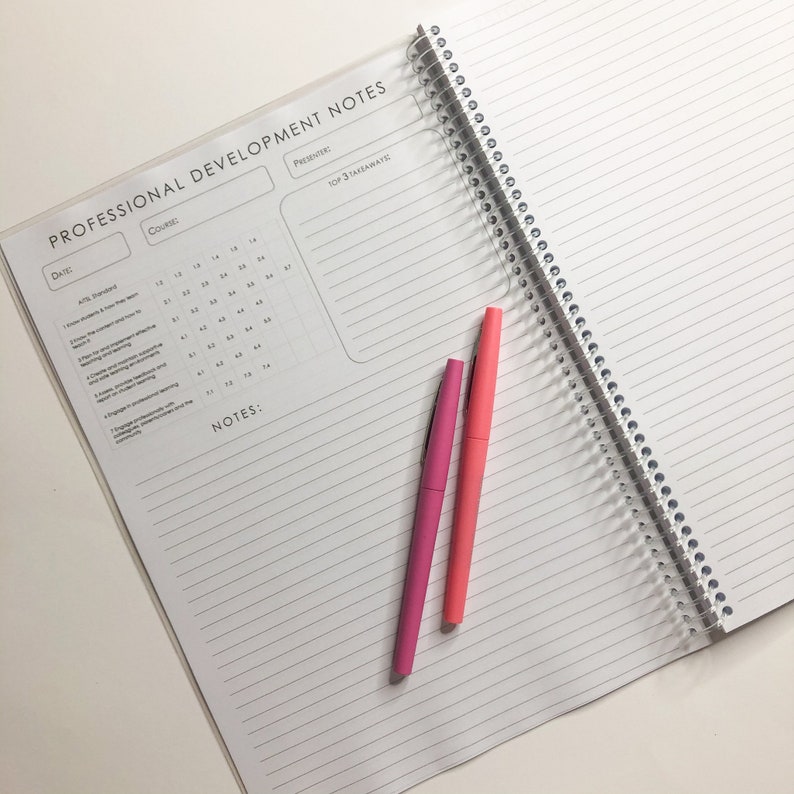 PROFESSIONAL DEVELOPMENT NOTES
DATE:
COURSE:
PRESENTER:
TOP 3 TAKEAWAYS:
AITSL Standard
1 Know students & how they learn
1.2 1.2 1.3 1.4 1.5 1.6
2 Know the content and how to
teach it
2.1 2.2 2.3 2.4 2.5 2.6
3 Plan for and implement effective
teaching and learning
3.1 3.2 3.3 3.4 3.5 3.6 3.7
4 Create and maintain supportive
and safe learning environments
4.1 4.2 4.3 4.4 4.5
5 Assess, provide feedback and
report on student learning
5.1 5.2 5.3 5.4 5.5
6 Engage in professional learning
6.1 6.2 6.3 6.4
7 Engage professionally with
colleagues, parents/carers and the
community
7.1 7.2 7.3 7.4
NOTES: